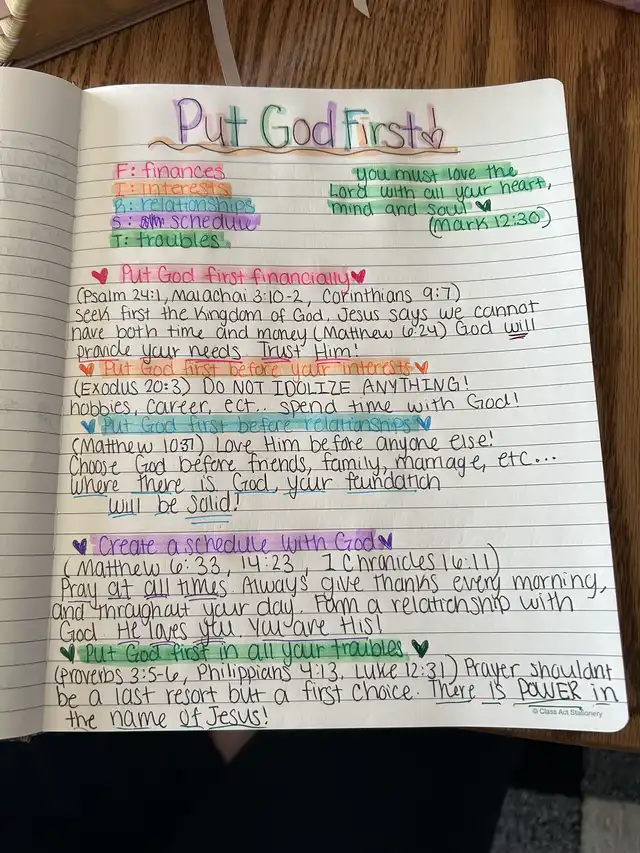 Put God First
F: finances
I: interests
R: relationships
S: schedule
T: troubles
you must love the
Lord with all your heart,
mind and soul
(Mark 12:30)
Put God first financially
(Psalm 24:1, Malachai 3:10-2, Corinthians 9:7)
Seek first the Kingdom of God. Jesus says we cannot
have both time and money (Matthew 6:24) God will
provide your needs Trust Him!
Put God first before your interests
(Exodus 20:3) DO NOT IDOLIZE ANYTHING!
hobbies, career, ect.. spend time with God!
Put God first before relationships
(Matthew 10:37) Love Him before anyone else!
Choose God before friends, family, marriage, etc...
Where there is God, your foundation
will be solid!
Create a schedule with God
(Matthew 6:33, 14:23, 1 Chronicles 16:11)
Pray at all times. Always give thanks every morning,
and throughout your day. Form a relationship with
God. He loves you. You are His!
Put God first in all your troubles
(Proverbs 3:5-6, Philippians 4:13, Luke 12:31) Prayer shouldnt
be a last resort but a first choice. There is POWER in
the name of Jesus!
© Class Act Stationery